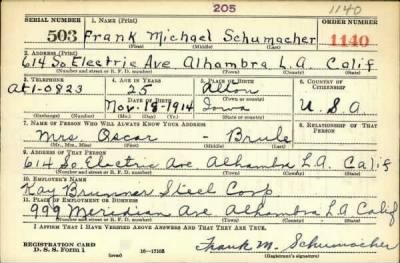 205
1140
SERIAL NUMBER 1. NAME (Print) ORDER NUMBER
503 Frank Michael Schumacher 1140
(First) (Middle) (Last)
2. ADDRESS (Print)
614 So Electric Ave Alhambra L.A. Calif
(Number and street or R. F. D. number) (Town) (County) (State)
3. TELEPHONE 4. AGE IN YEARS 5. PLACE OF BIRTH 6. COUNTRY OF CITIZENSHIP
At 1-0823 25 Alton
DATE OF BIRTH (Town or county)
Nov. 1914 Iowa U.S.A
(Mo.) (Day) (Yr.) (State or country)
7. NAME OF PERSON WHO WILL ALWAYS KNOW YOUR ADDRESS 8. RELATIONSHIP OF THAT PERSON
Mrs. Oscar - Brule
(Mr., Mrs., Miss) (First) (Middle) (Last)
9. ADDRESS OF THAT PERSON
614 So. Electric Ave. Alhambra L.A. Calif
(Number and street or R. F. D. number) (Town) (County) (State)
10. EMPLOYER'S NAME
Kay Brunner Steel Corp
11. PLACE OF EMPLOYMENT OR BUSINESS
999 Meridian Ave Alhambra L.A Calif
(Number and street or R. F. D. number) (Town) (County) (State)
I AFFIRM THAT I HAVE VERIFIED ABOVE ANSWERS AND THAT THEY ARE TRUE.
REGISTRATION CARD
D. S. S. Form 1 16—17105 Frank M. Schumacher
(Registrant's signature)